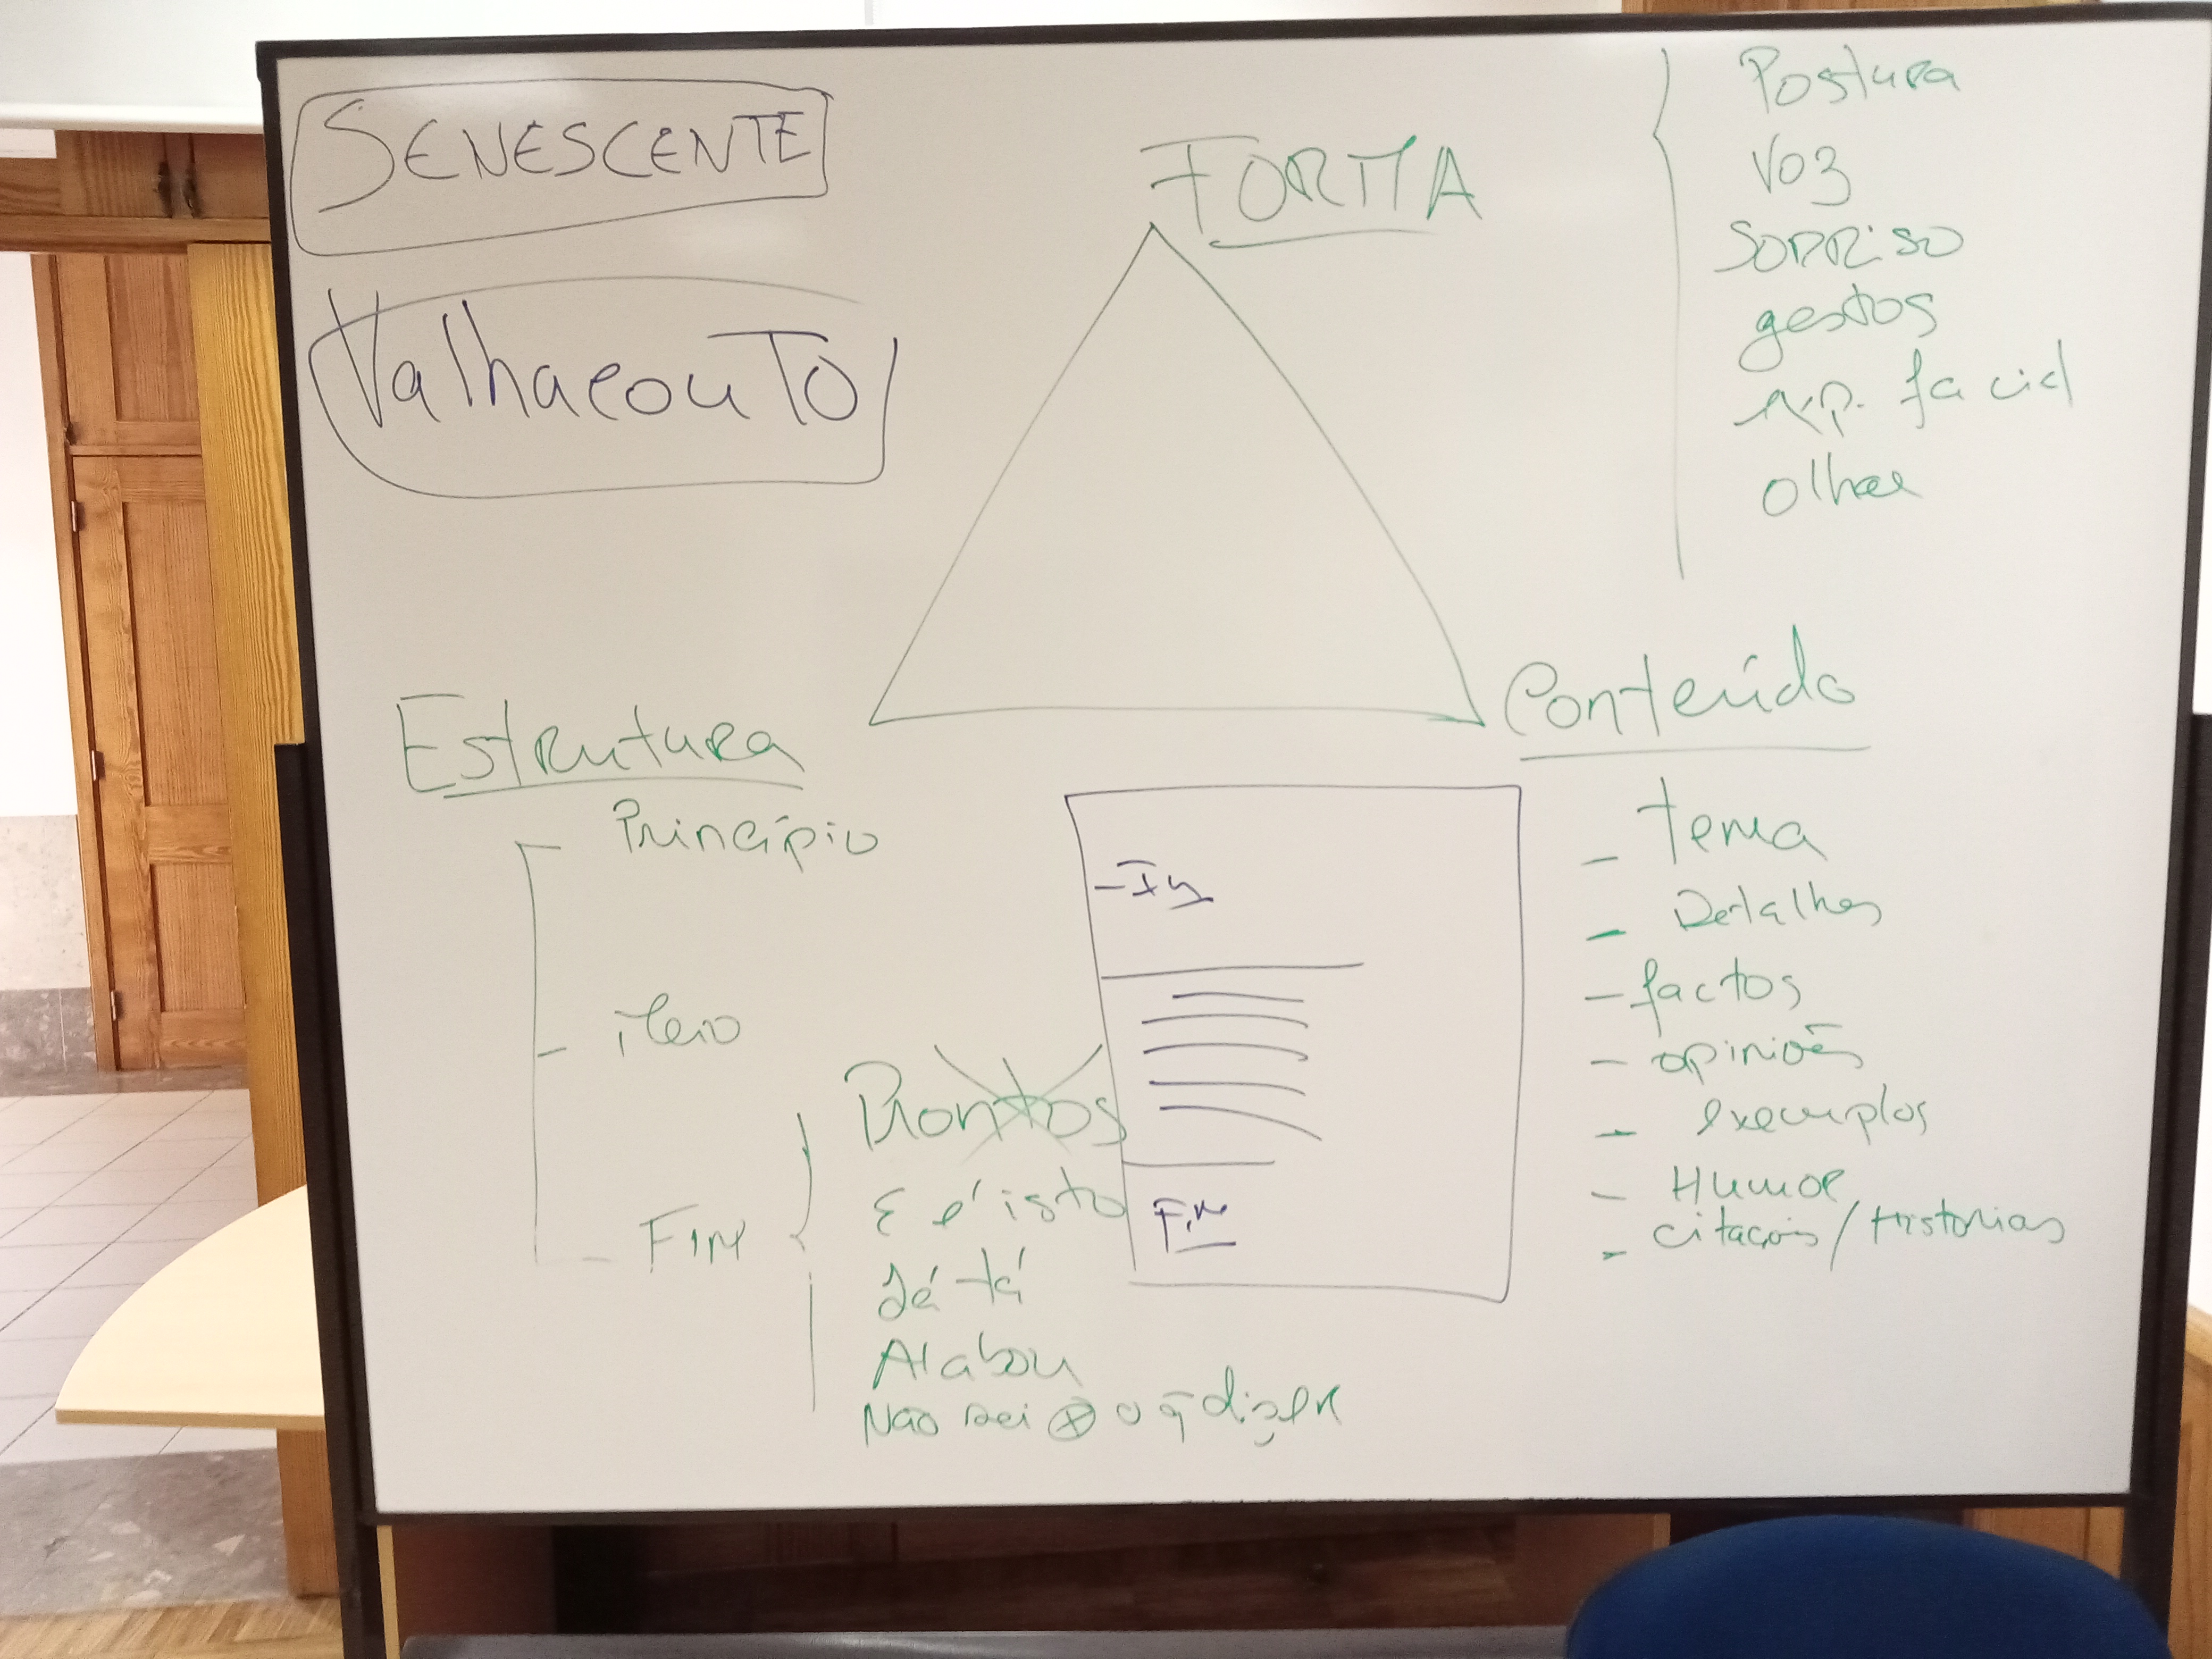 SENESCENTE
ValhacouTo
FORMA
Postura
Voz
SORRISO
gestos
exp. facial
olhar
Estrutura
Princípio
Meio
Fim
Prontos
E é isto
Já tá
Acabou
Não sei + o q dizer
Fim
Conteúdo
- tema
- Detalhes
- factos
- opiniões
- exemplos
- Humor
- citações / Historias